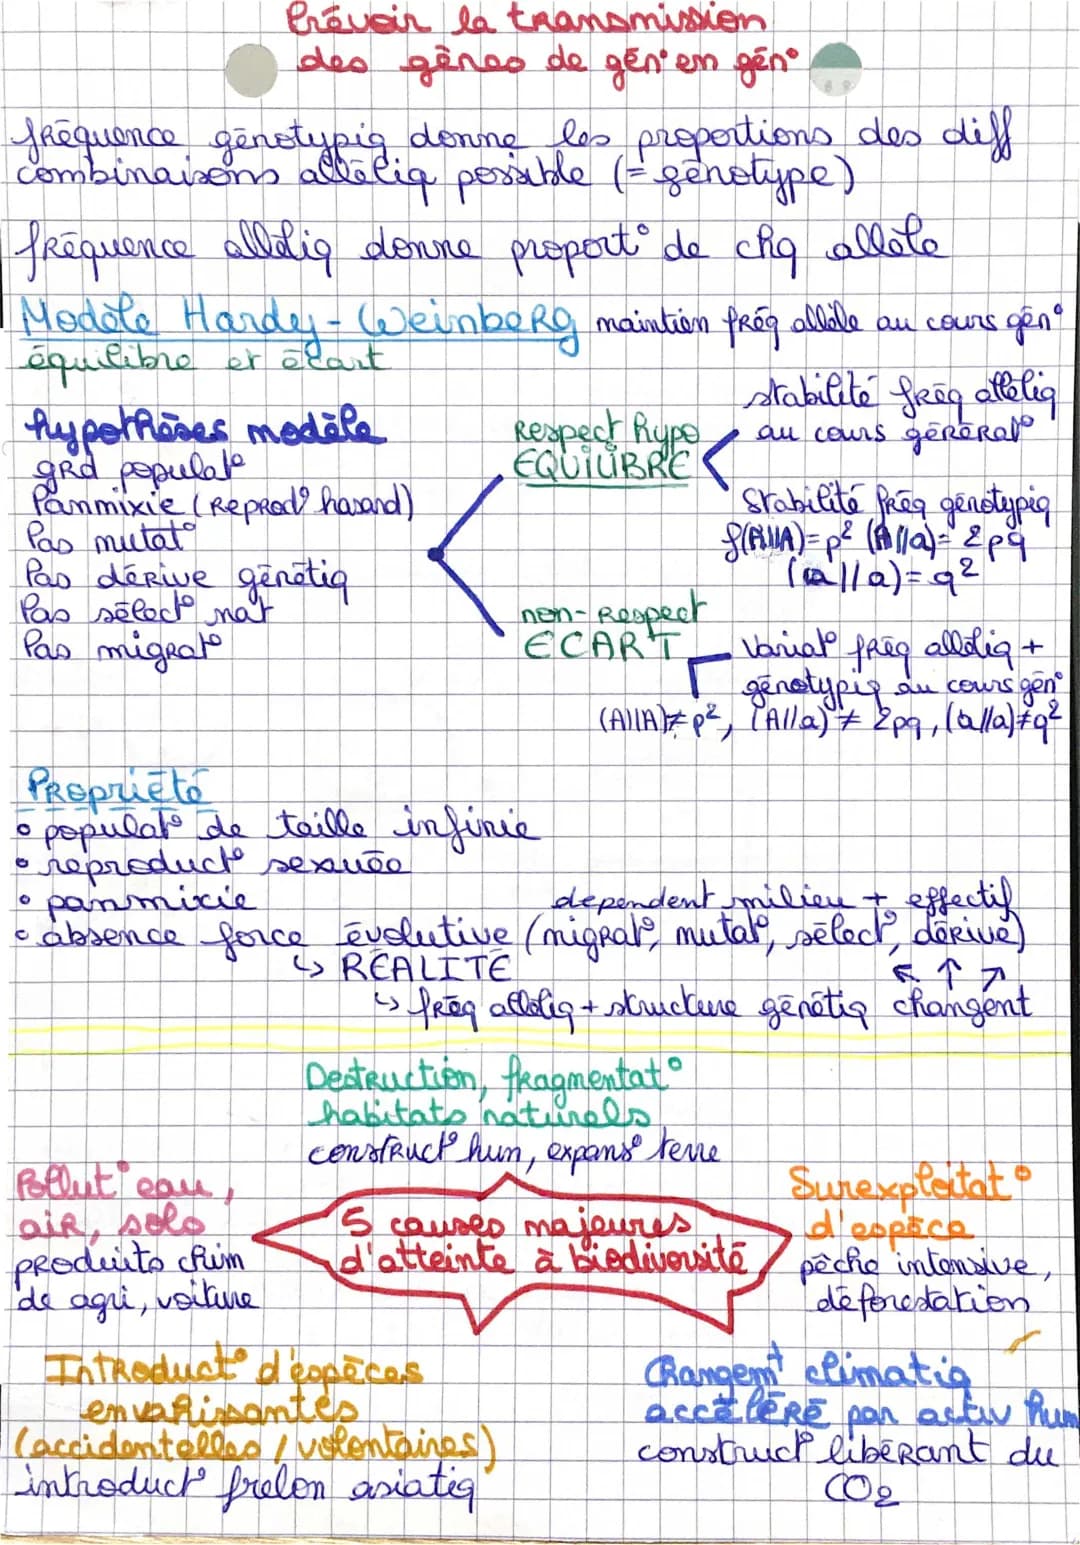 Prévoir la transmission
des gènes de gén° en gén°
fréquence génotypiq donne les proportions des diff
combinaisons alléliq possible (= génotype)
fréquence alléliq donne proport° de chq allèle
Modèle Hardy-Weinberg maintien fréq allèle au cours gén°
équilibre et écart
hypothèses modèle
grd populat°
Panmixie (Reprod° hasard)
Pas mutat°
Pas dérive génétiq
Pas sélect° nat
Pas migrat°
Respect hypo
EQUILIBRE
stabilité fréq alléliq
au cours générat°
Stabilité fréq génotypiq
f(A//A)=p² (A//a)= 2pq
(a//a)=q²
non-Respect
ECART
Variat° fréq alléliq +
génotypiq au cours gén°
(A//A)≠p², (A//a)≠2pq, (a//a)≠q²
Propriété
• populat° de taille infinie
• reproduct° sexuée
• panmixie
dependent milieu + effectif
• absence force évolutive (migrat°, mutat°, sélect°, dérive)
↳ RÉALITÉ
↖ ↑ ↗
↳ fréq alléliq + structure génétiq changent
Destruction, fragmentat°
habitats naturels
construct° hum, expans° terre
Pollut° eau,
air, sols
produits chim
de agri, voiture
5 causes majeures
d'atteinte à biodiversité
Surexploitat°
d'espèce
pêche intensive,
déforestation
Introduct° d'espèces
envahissantes
(accidentelles / volontaires)
introduct° frelon asiatiq
Changemt climatiq
accéléré par activ hum
construct° libérant du
CO2